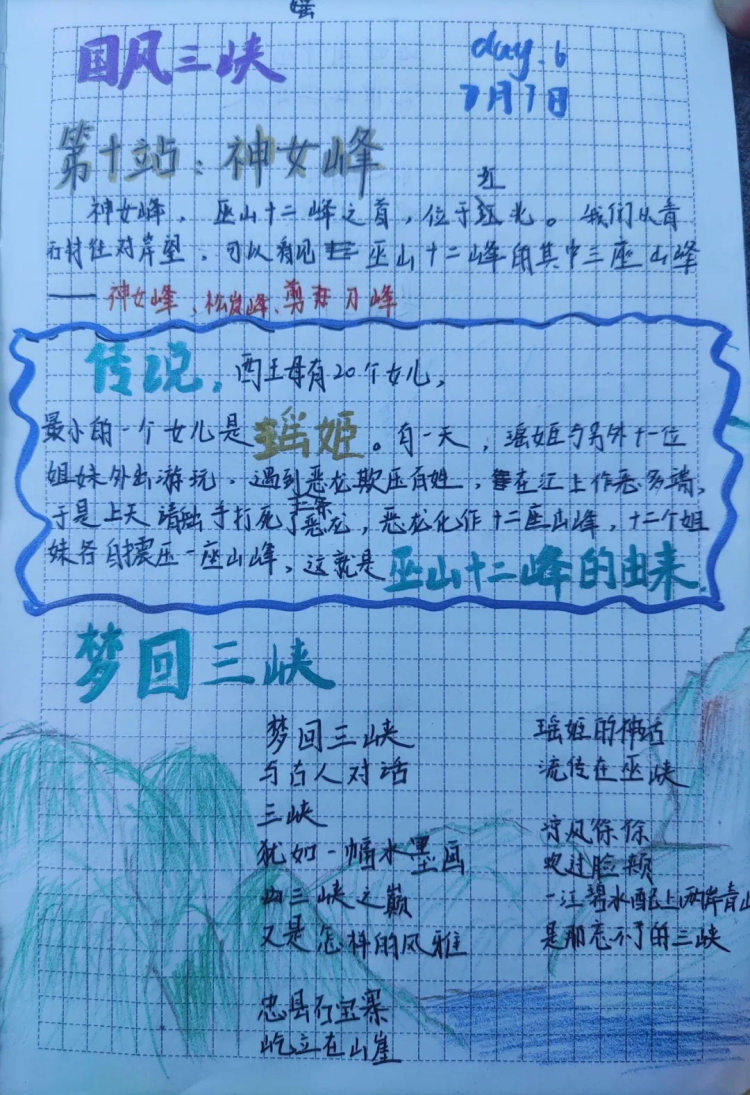 瑶
国风三峡
day.6
7月7日
第十站：神女峰
红
神女峰，巫山十二峰之首，位于北光。我们从青
石村往对岸望，可以看见巫山十二峰的其中三座山峰
——神女峰、松峦峰、剪刀峰
传说，西王母有20个女儿，
最小的一个女儿是瑶姬。有一天，瑶姬与另外十一位
姐妹外出游玩，遇到恶龙欺压百姓，在江上作恶多端，
十二条
于是上天请出手打死了恶龙，恶龙化作十二座山峰，十二个姐
妹各自震压一座山峰，这就是巫山十二峰的由来.
梦回三峡
梦回三峡
与古人对话
三峡
犹如一幅水墨画
三峡之巅
又是怎样的风雅
忠县石宝寨
屹立在山崖
瑶姬的神话
流传在巫峡
凉风徐徐
吹过脸颊
一江碧水配上两岸青山
是那忘不了的三峡